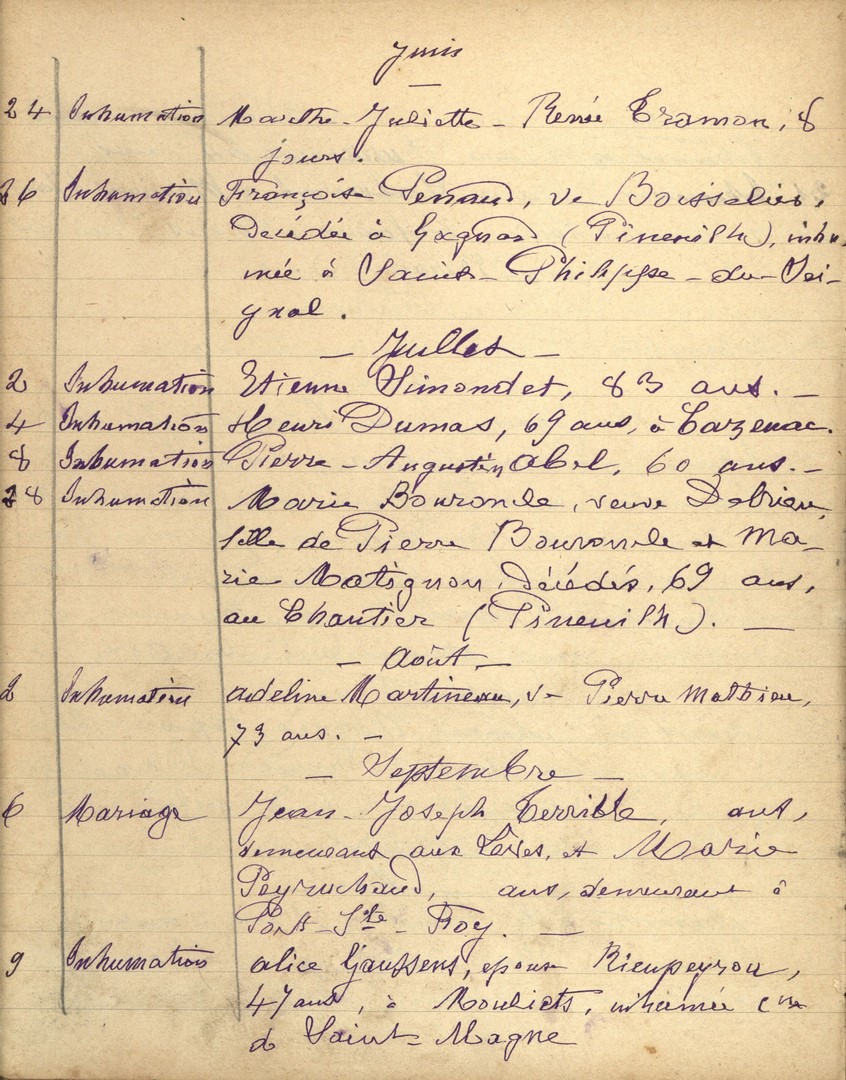 Juin
24 Inhumation Marthe-Juliette-Renée Tramon, 8
jours.
26 Inhumation Françoise Penaud, ve Boisselier,
décédée à Gagnard (Pineuilh), inhu-
mée à Saint-Philippe-du-Sei-
gnal.
- Juillet -
2 Inhumation Etienne Simondet, 83 ans. -
4 Inhumation Henri Dumas, 69 ans, à Carzenac.
8 Inhumation Pierre-Augustin Abel, 60 ans. -
28 Inhumation Marie Bouroncle, veuve
fille de Pierre Bouroncle et Ma-
rie Matignon, décédés, 69 ans,
au Chantier (Pineuilh). -
- Août -
2 Inhumation Adeline Martineau, ve Pierre Mathieu,
73 ans. -
- Septembre -
6 Mariage Jean-Joseph Terrible, ans,
demeurant aux Lèves, et Marie
Peyruchaud, ans, demeurant à
Port-Ste-Foy. -
9 Inhumation Alice Gaussens, épouse Rieupeyrou,
47 ans, à Mouliets, inhumée cne
d Saint-Magne